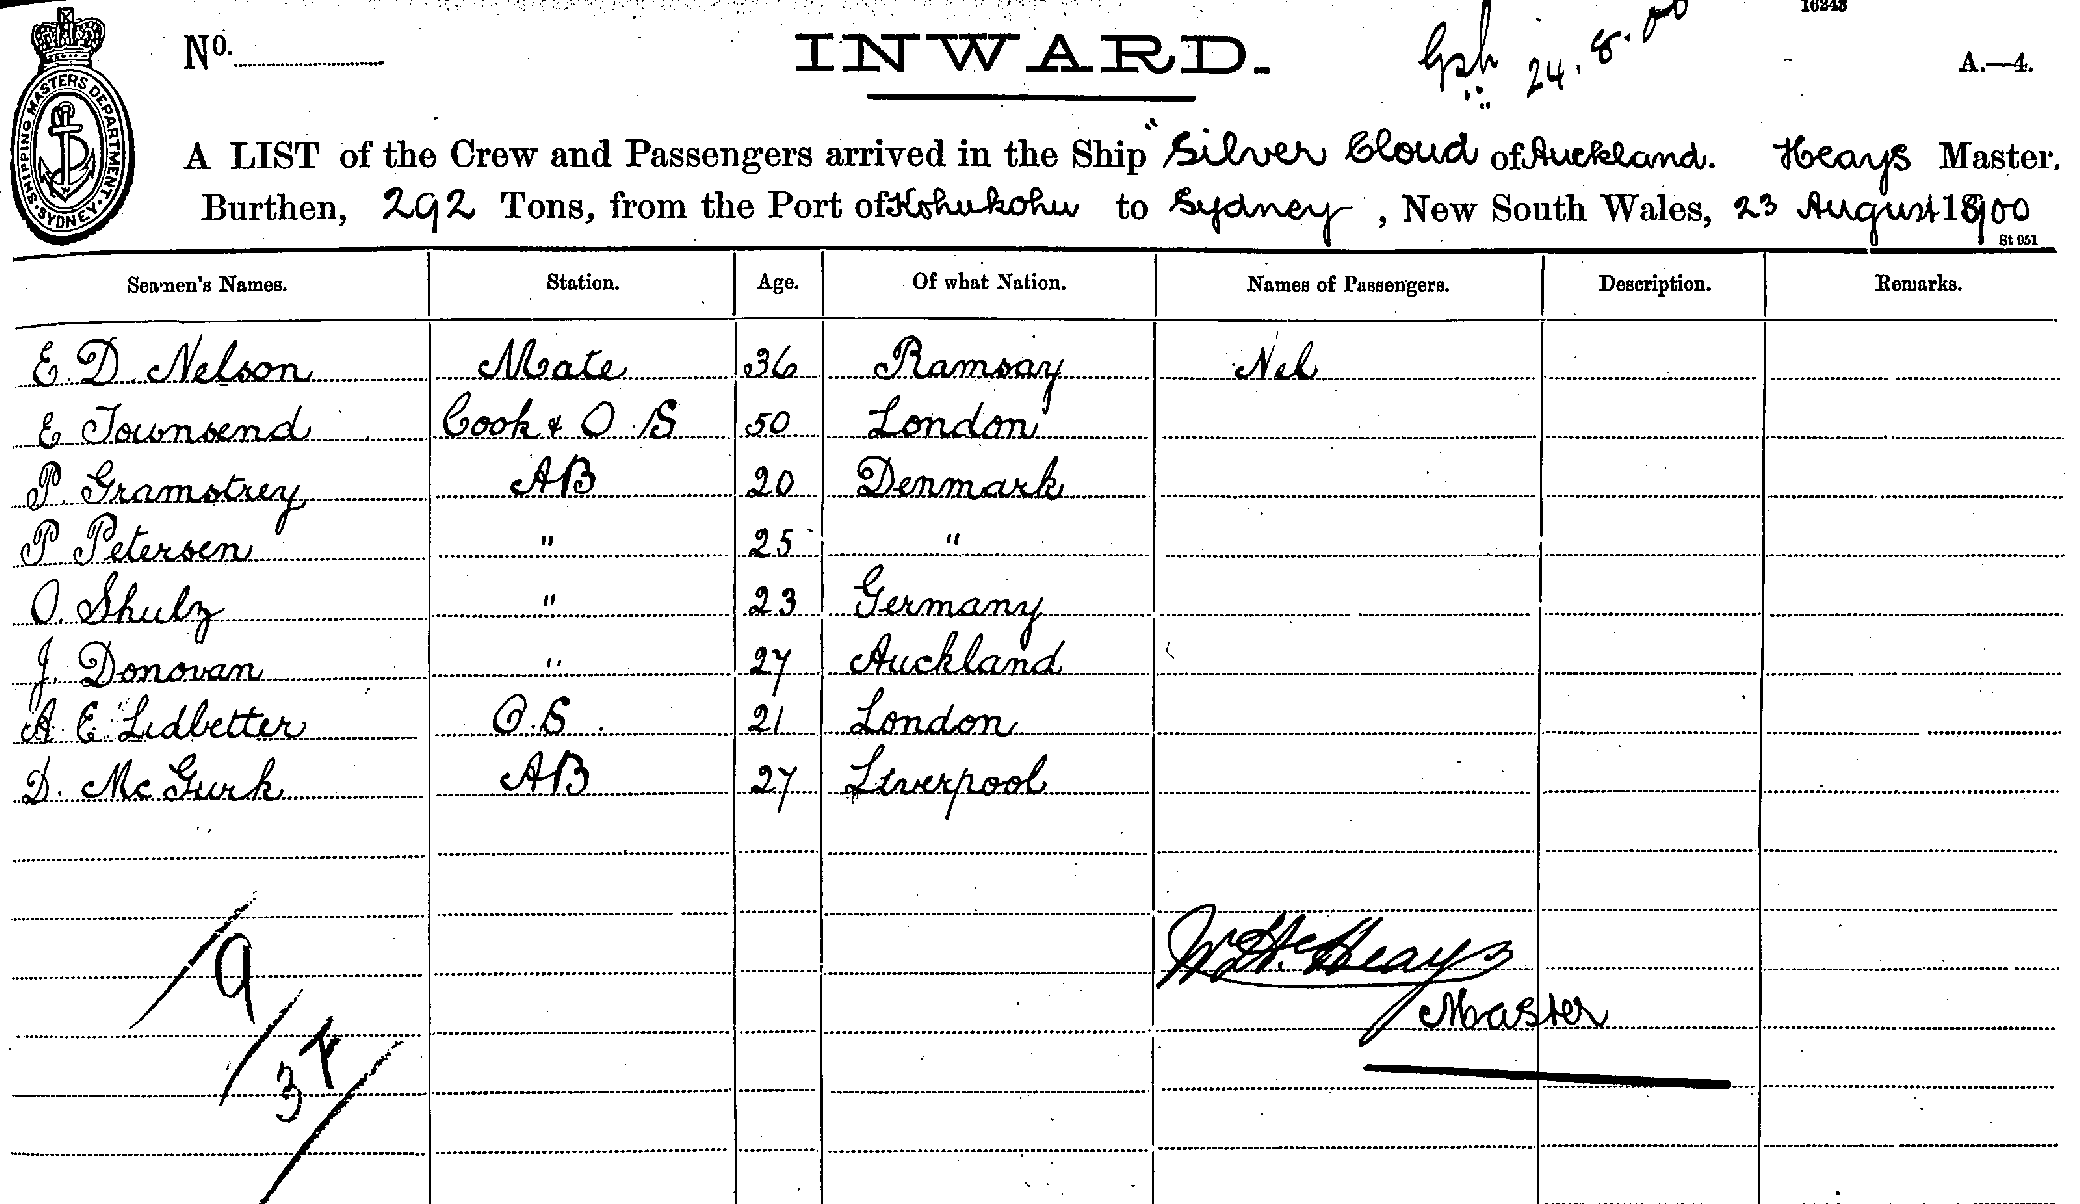 16243
Nº.
INWARD.
24.8.00
A.—4.
SHIPPING MASTERS DEPARTMENT. SYDNEY.
A LIST of the Crew and Passengers arrived in the Ship "Silver Cloud of Auckland. Heays Master.
Burthen, 292 Tons, from the Port of Kohukohu to Sydney, New South Wales, 23 August 1900
St 951
Seamen's Names. Station. Age. Of what Nation. Names of Passengers. Description. Remarks.
E. D. Nelson Mate 36 Ramsay Nil
E Townsend Cook & O S 50 London
P. Gramstrey AB 20 Denmark
P Petersen " 25 "
O. Shulz " 23 Germany
J. Donovan " 27 Auckland
A E Ledbetter O.S. 21 London
D. McGurk AB 27 Liverpool
9
W. H. Heays
Master
3